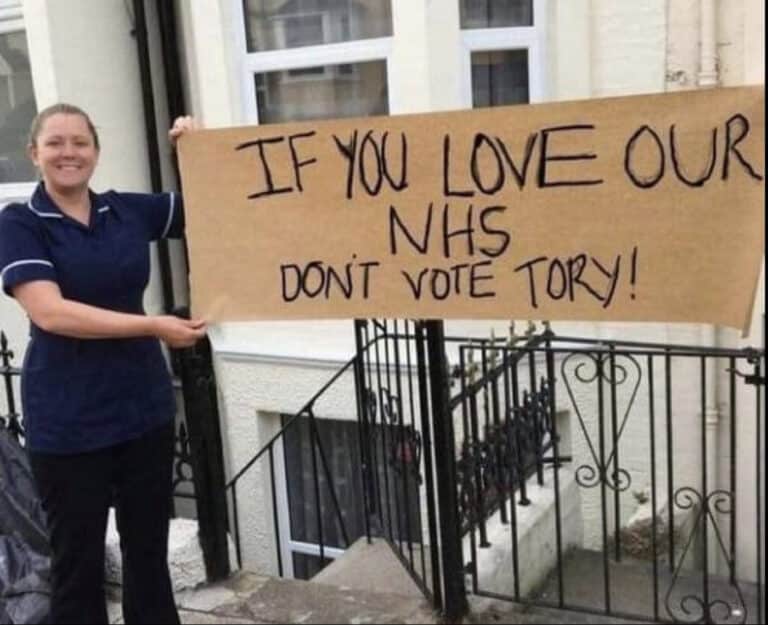 IF YOU LOVE OUR
NHS
DON'T VOTE TORY!